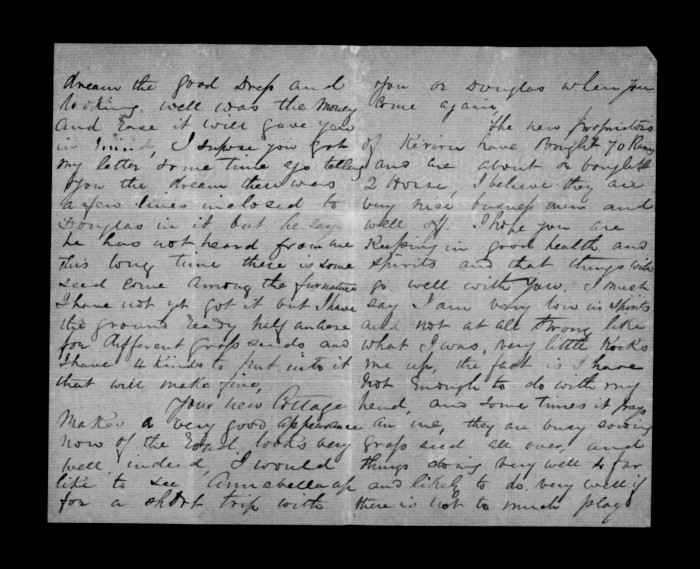 dream the good Dress and
looking well was the money
and Ease it will gave you
in mind, I supose you got
my letter some time ago telling
you the dream there was
a few lines inclosed to
Douglas in it but he says
he has not heard from me
this long time there is some
seed come among the furnature
I have not yet got it but I have
the ground ready half an acre
for different grass seeds and
I have 4 kinds to put into it
that will make five,
Your new Cottage
makes a very good appearance
now of the Road looks very
well indeed, I would
like to see Annabella up
for a short trip with
you or Douglas when you
come again,
The new proprietors
of have Bought 70 Rams
and are about or bought
2 Horse, I believe they are
very nice business men and
well off. I hope you are
Keeping in good health and
spirits and that things with
go well with you. I must
say I am very low in spirits
and not at all strong like
what I was, very little Knocks
me up, the fact is I have
not Enough to do with my
head, and some times it
on me, they are busy sowing
grass seed all over, and
things doing very well so far
and likely to do very well if
there is not to much play